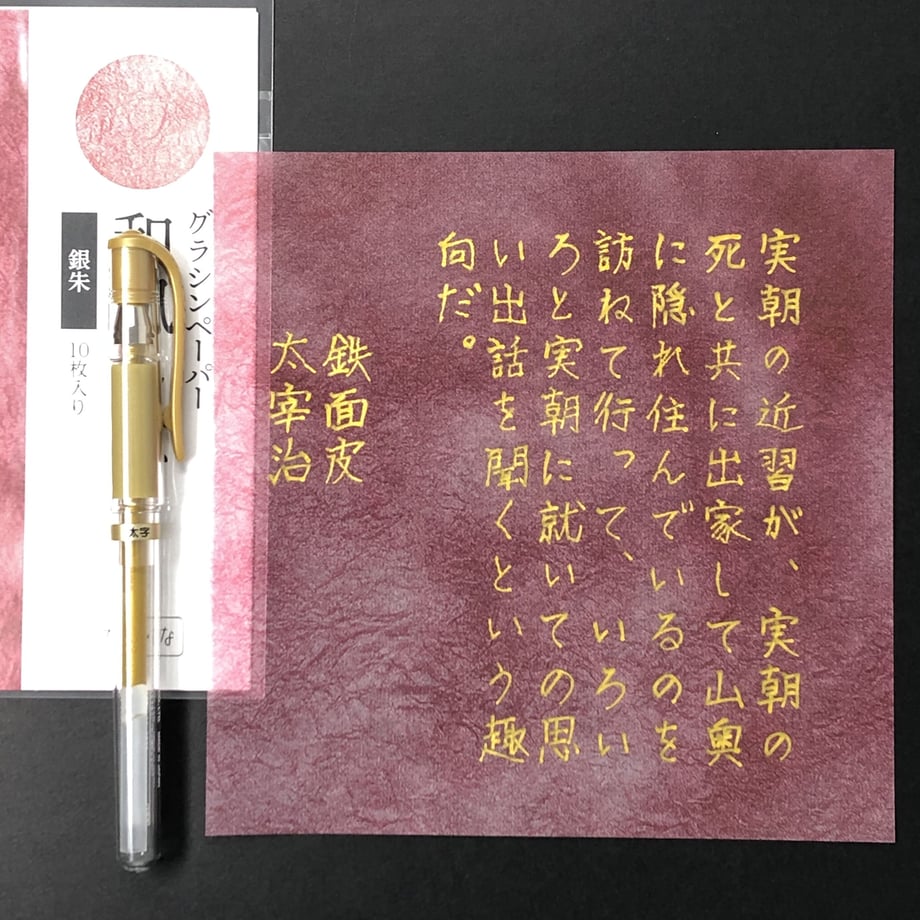 実朝の近習が、実朝の
死と共に出家して山奥
に隠れ住んでいるのを
訪ねて行って、いろい
ろと実朝に就いての思
い出話を聞くという趣
向だ。
鉄面皮
太宰治
グラシンペーパー
銀朱
10枚入り
太字